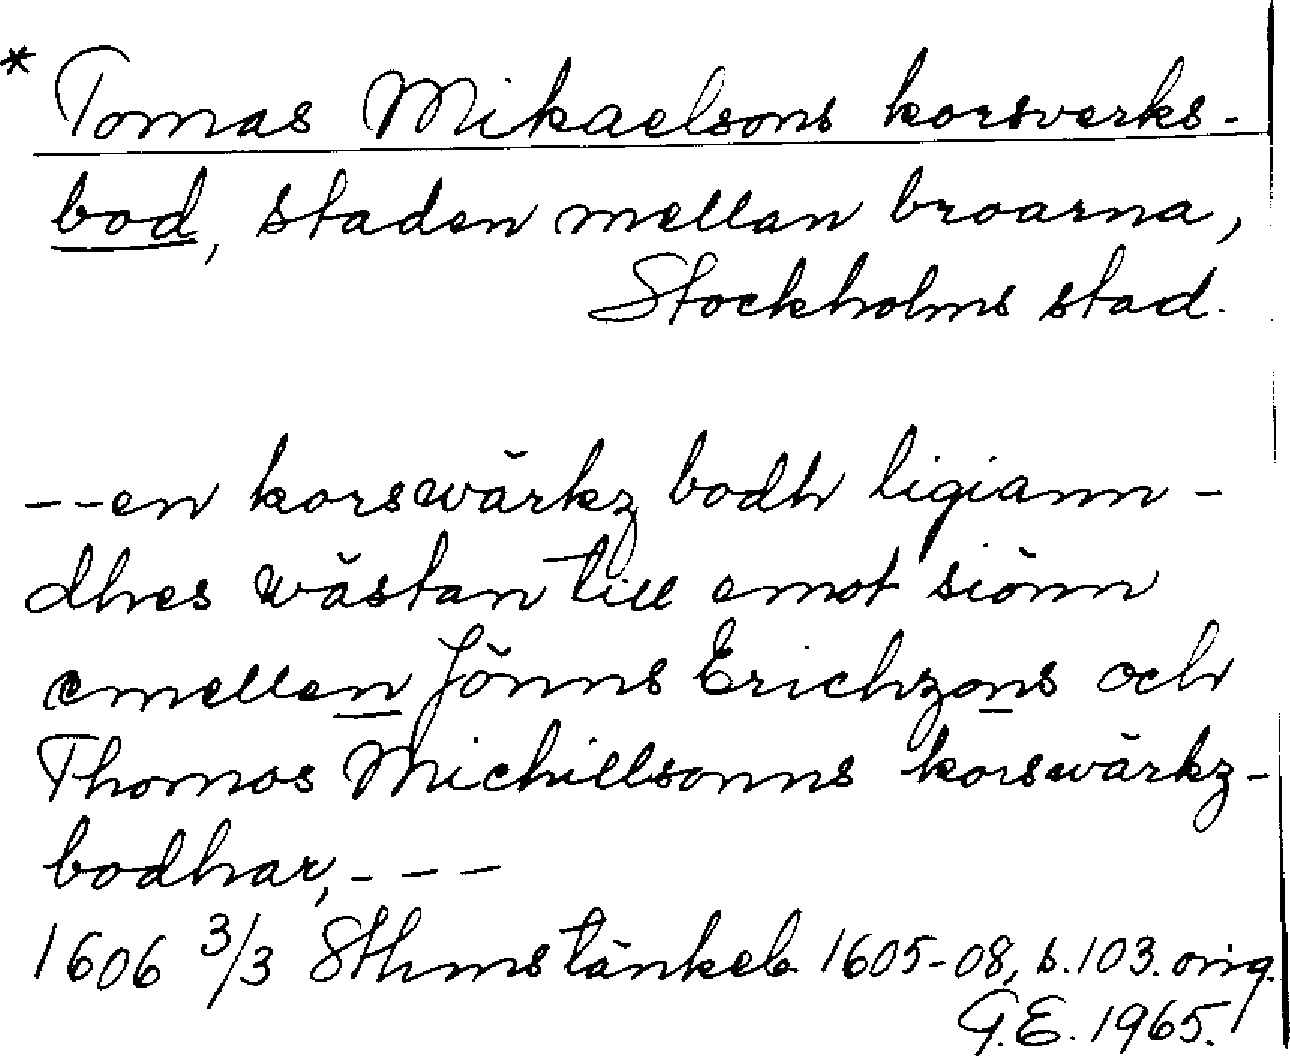 * Tomas Mikaelsons korsverks-
bod, staden mellan broarna,
Stockholms stad.
--en korswärkz bodh ligiann-
dhes wästan till emot siönn
emellen Jönns Erichzons och
Thomos Michillsonns korswärkz-
bodhar, - - -
1606 3/3 Sthms tänkeb. 1605-08, s. 103. orig.
G.E. 1965.